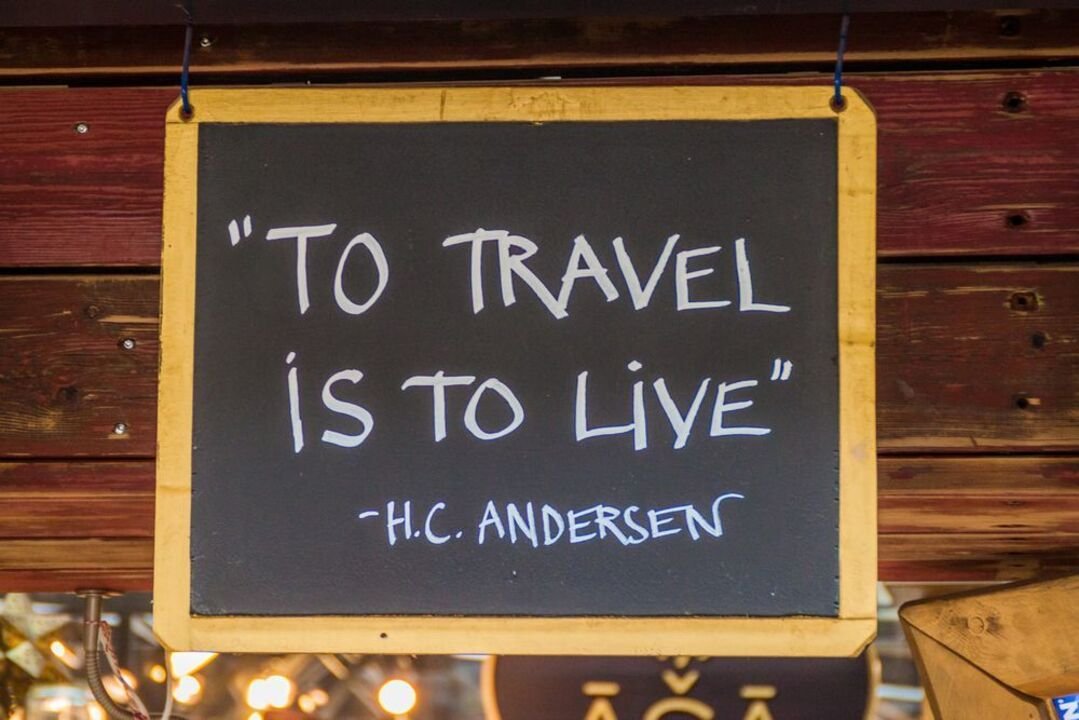 "TO TRAVEL
iS TO LiVE"
-H.C. ANDERSEN